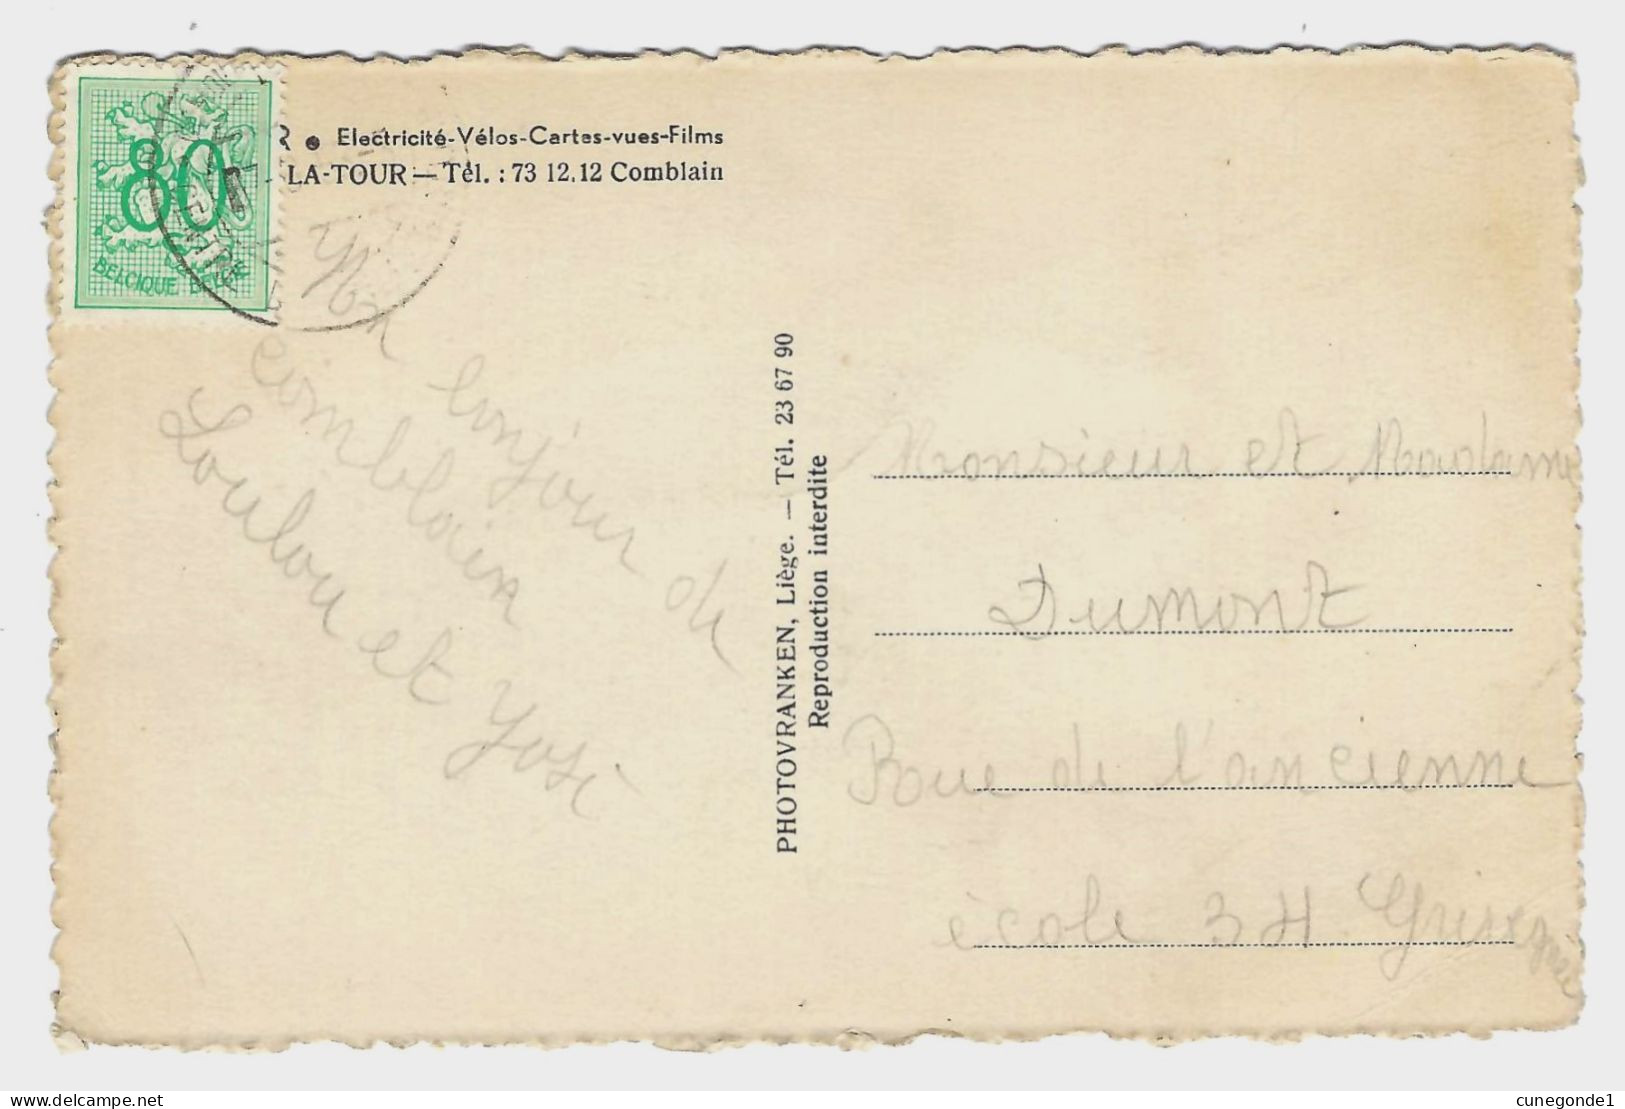 R • Electricité-Vélos-Cartes-vues-Films
LA-TOUR — Tél. : 73 12.12 Comblain
80
BELGIQUE BELGIE
bonjour de
comblain
Loulou et José
PHOTOVRANKEN, Liège. — Tél. 23 67 90
Reproduction interdite
Monsieur et Madame
Dumont
Rue de l'ancienne
école 34
delcampe.net
cunegonde1